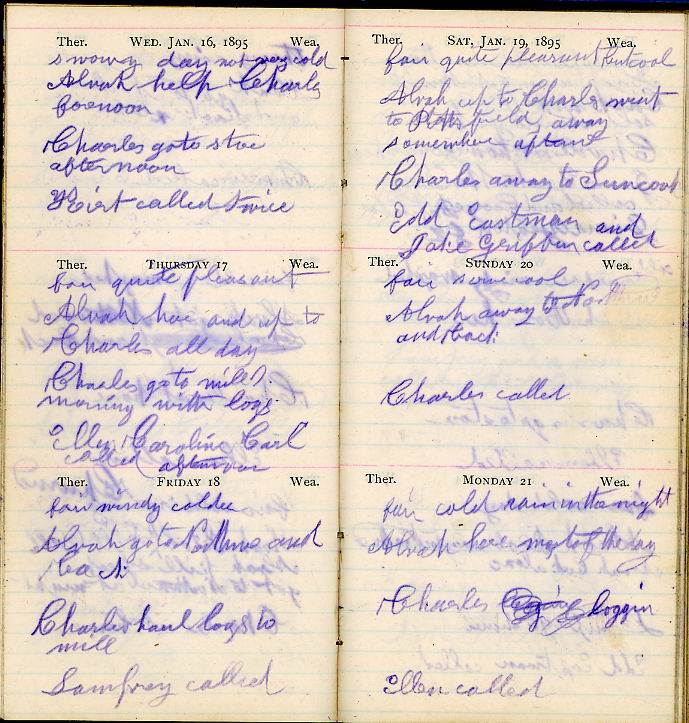 Ther. WED. JAN. 16, 1895 Wea.
snowy day not very cold
Alvah help Charles
forenoon
Charles go to stoe
afternoon
called twice
Ther. THURSDAY 17 Wea.
fair quite pleasant
Alvah here and up to
Charles all day
Charles go to mill
morning with logs
Elly Caroline Carl
called afternoon
Ther. FRIDAY 18 Wea.
fair windy colder
Alvah go to and
back
Charles haul logs to
mill
called
Ther. SAT. JAN. 19, 1895 Wea.
fair quite pleasant but cool
Alvah up to Charles went
to Pittsfield away
somewhere
Charles away to Suncook
Edd Eastman and
Jake called
Ther. SUNDAY 20 Wea.
fair some cool
Alvah away to
and back
Charles called
Ther. MONDAY 21 Wea.
fair cold rain in the night
Alvah here most of the day
Charles loggin
Ellen called